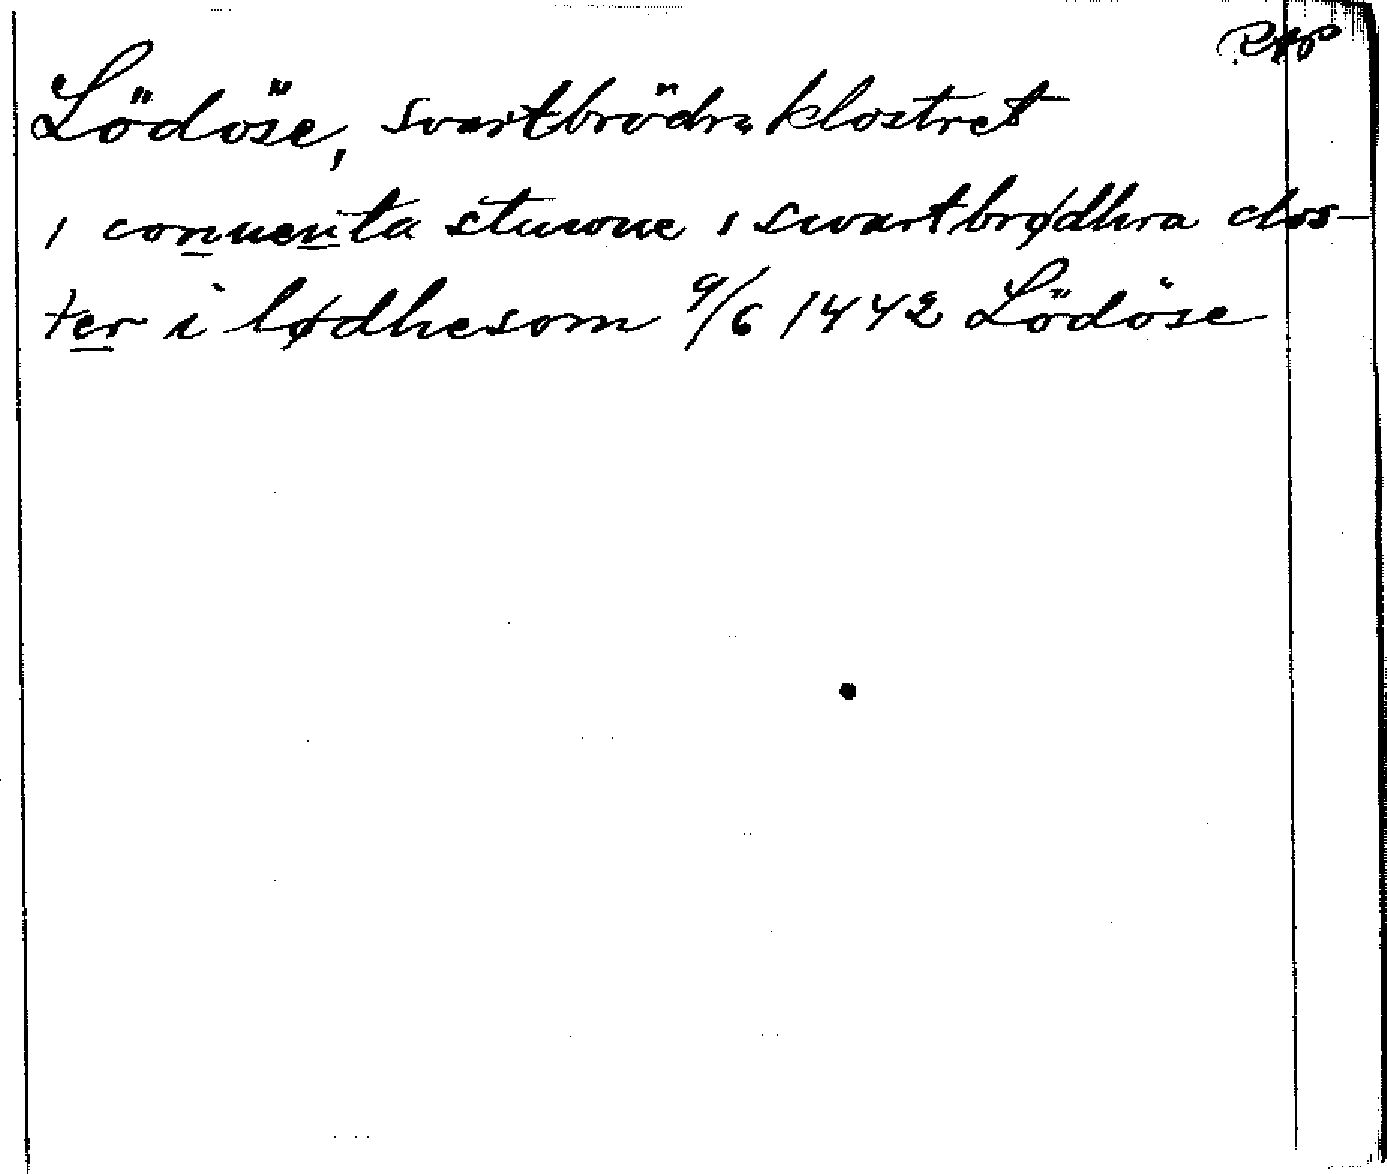 RAP
Lödöse, svartbrödraklostret
i conuenta stuwone i swartbrødhra clos-
ter i lødhesom 9/6 1442 Lödöse